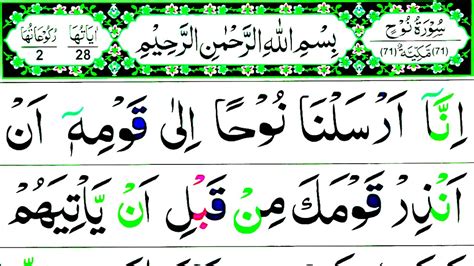 سُوْرَةُ نُوْحٍ
(71) مَكِّيَّةٌ (71)
بِسْمِ اللّٰهِ الرَّحْمٰنِ الرَّحِيْمِ
اٰيَاتُهَا 28
رُكُوْعَاتُهَا 2
اِنَّاۤ اَرْسَلْنَا نُوْحًا اِلٰى قَوْمِهٖۤ اَنْ
اَنْذِرْ قَوْمَكَ مِنْ قَبْلِ اَنْ يَّاْتِيَهُمْ